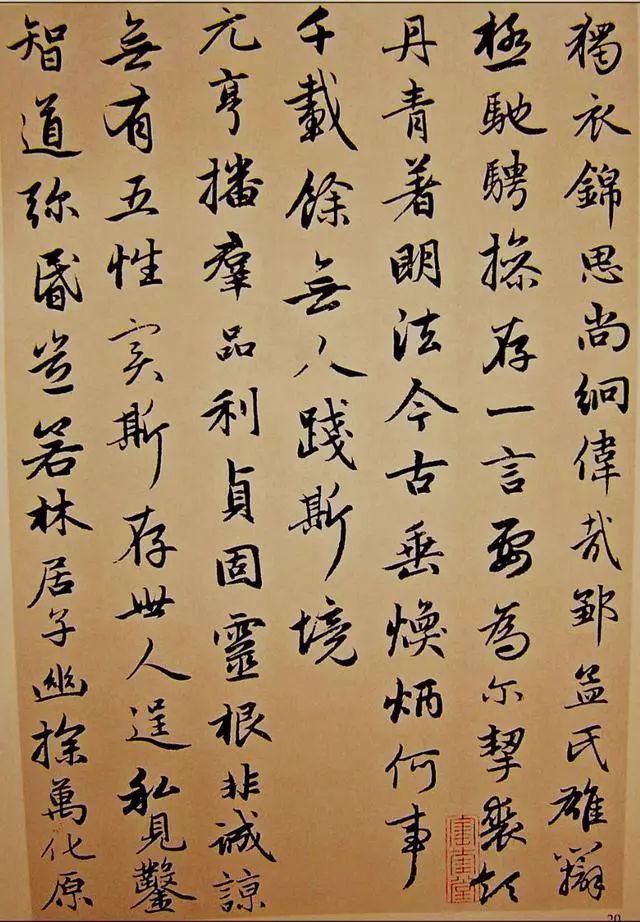 獨衣錦思尚絅偉哉鄒孟氏雄辯
極馳騁操存一言要為尔挈裘領
丹青著明法今古垂煥炳何事
千載餘無人踐斯境
元亨播羣品利貞固靈根非誠諒
無有五性实斯存世人逞私見鑿
智道弥昏豈若林居子幽探萬化原
20